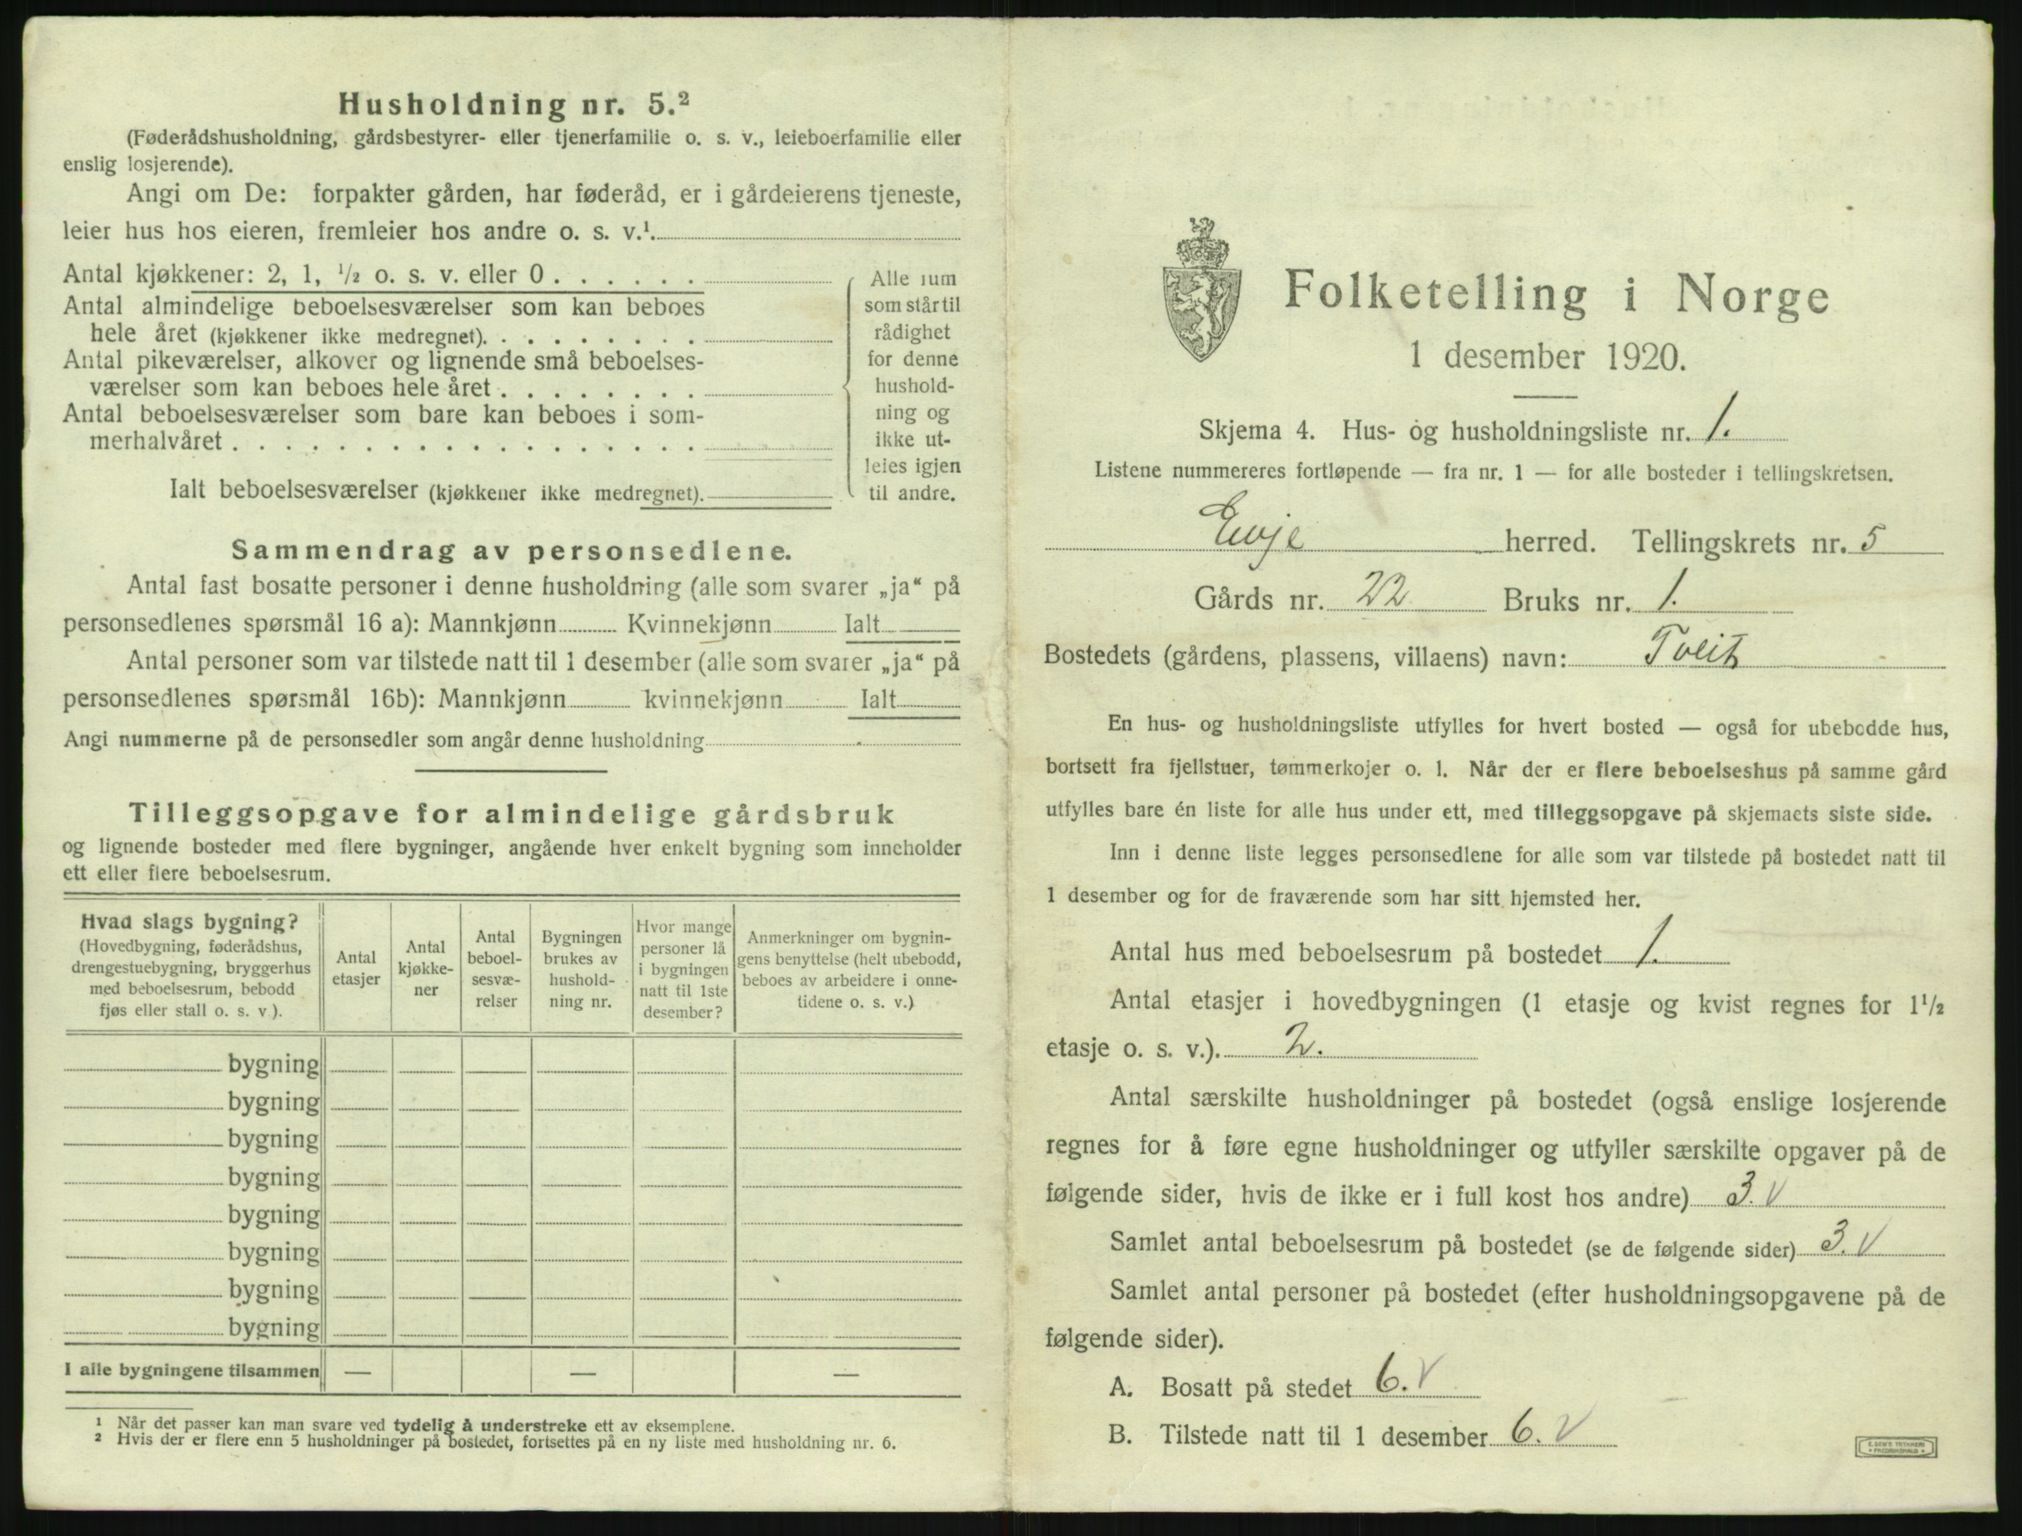 Husholdning nr. 5.²
(Føderådshusholdning, gårdsbestyrer- eller tjenerfamilie o. s. v., leieboerfamilie eller
enslig losjerende).
Angi om De: forpakter gården, har føderåd, er i gårdeierens tjeneste,
leier hus hos eieren, fremleier hos andre o. s. v.¹.
Antal kjøkkener: 2, 1, ½ o. s. v. eller 0 . . . . . .
Antal almindelige beboelsesværelser som kan beboes
hele året (kjøkkener ikke medregnet). . . . . . . . .
Antal pikeværelser, alkover og lignende små beboelses-
værelser som kan beboes hele året . . . . . . . .
Antal beboelsesværelser som bare kan beboes i som-
merhalvåret . . . . . . . . . . . . . . . . . .
Ialt beboelsesværelser (kjøkkener ikke medregnet).
Alle rum
som står til
rådighet
for denne
hushold-
ning og
ikke ut-
leies igjen
til andre.
Sammendrag av personsedlene.
Antal fast bosatte personer i denne husholdning (alle som svarer „ja“ på
personsedlenes spørsmål 16 a): Mannkjønn Kvinnekjønn Ialt
Antal personer som var tilstede natt til 1 desember (alle som svarer „ja“ på
personsedlenes spørsmål 16b): Mannkjønn kvinnekjønn Ialt
Angi nummerne på de personsedler som angår denne husholdning
Tilleggsopgave for almindelige gårdsbruk
og lignende bosteder med flere bygninger, angående hver enkelt bygning som inneholder
ett eller flere beboelsesrum.
Hvad slags bygning?
(Hovedbygning, føderådshus,
drengestuebygning, bryggerhus
med beboelsesrum, bebodd
fjøs eller stall o. s. v ).
Antal
etasjer
Antal
kjøkke-
ner
Antal
beboel-
sesvæ-
relser
Bygningen
brukes av
hushold-
ning nr.
Hvor mange
personer lå
i bygningen
natt til 1ste
desember?
Anmerkninger om bygnin-
gens benyttelse (helt ubebodd,
beboes av arbeidere i onne-
tidene o. s. v.)
bygning
bygning
bygning
bygning
bygning
bygning
bygning
bygning
I alle bygningene tilsammen — — —
¹ Når det passer kan man svare ved tydelig å understreke ett av eksemplene.
² Hvis der er flere enn 5 husholdninger på bostedet, fortsettes på en ny liste med husholdning nr. 6.
Folketelling i Norge
1 desember 1920.
Skjema 4. Hus- og husholdningsliste nr. 1.
Listene nummereres fortløpende — fra nr. 1 — for alle bosteder i tellingskretsen.
Evje herred. Tellingskrets nr. 5
Gårds nr. 22 Bruks nr. 1.
Bostedets (gårdens, plassens, villaens) navn: Tveit
En hus- og husholdningsliste utfylles for hvert bosted — også for ubebodde hus,
bortsett fra fjellstuer, tømmerkojer o. l. Når der er flere beboelseshus på samme gård
utfylles bare én liste for alle hus under ett, med tilleggsopgave på skjemaets siste side.
Inn i denne liste legges personsedlene for alle som var tilstede på bostedet natt til
1 desember og for de fraværende som har sitt hjemsted her.
Antal hus med beboelsesrum på bostedet 1.
Antal etasjer i hovedbygningen (1 etasje og kvist regnes for 1½
etasje o. s. v.). 2.
Antal særskilte husholdninger på bostedet (også enslige losjerende
regnes for å føre egne husholdninger og utfyller særskilte opgaver på de
følgende sider, hvis de ikke er i full kost hos andre) 3. V
Samlet antal beboelsesrum på bostedet (se de følgende sider) 3. V
Samlet antal personer på bostedet (efter husholdningsopgavene på de
følgende sider).
A. Bosatt på stedet 6. V
B. Tilstede natt til 1 desember 6. V